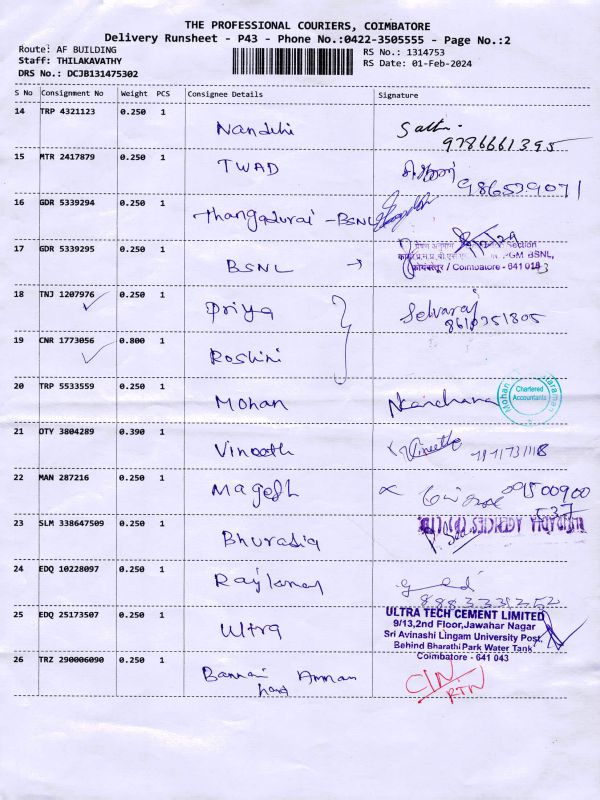 THE PROFESSIONAL COURIERS, COIMBATORE
Delivery Runsheet - P43 - Phone No.:0422-3505555 - Page No.:2
Route: AF BUILDING
RS No.: 1314753
Staff: THILAKAVATHY
RS Date: 01-Feb-2024
DRS No.: DCJB131475302
S No Consignment No Weight PCS Consignee Details Signature
14 TRP 4321123 0.250 1 Nandhi
9786661395
15 MTR 2417879 0.250 1 TWAD
986539071
16 GDR 5339294 0.250 1 Thangadurai - BSNL
17 GDR 5339295 0.250 1 BSNL
Section
PGM BSNL,
कोयंबत्तूर / Coimbatore - 641 043
18 TNJ 1207976 0.250 1 Priya Selvaraj
8610351805
19 CNR 1773056 0.800 1 Roshini
20 TRP 5533559 0.250 1 Mohan Kanchana
Chartered
Accountants
21 OTY 3804289 0.390 1 Vineeth Vineeth
22 MAN 287216 0.250 1 Magesh
09500900
537
23 SLM 338647509 0.250 1 Bhuradia
AGENCIES (P) LTD.
24 EDQ 10228097 0.250 1 Rajkumar
25 EDQ 25173507 0.250 1 Ultra
ULTRA TECH CEMENT LIMITED
9/13,2nd Floor,Jawahar Nagar
Sri Avinashi Lingam University Post,
Behind Bharathi Park Water Tank
Coimbatore - 641 043
26 TRZ 290006090 0.250 1 Bannari Amman
CIN
RTN